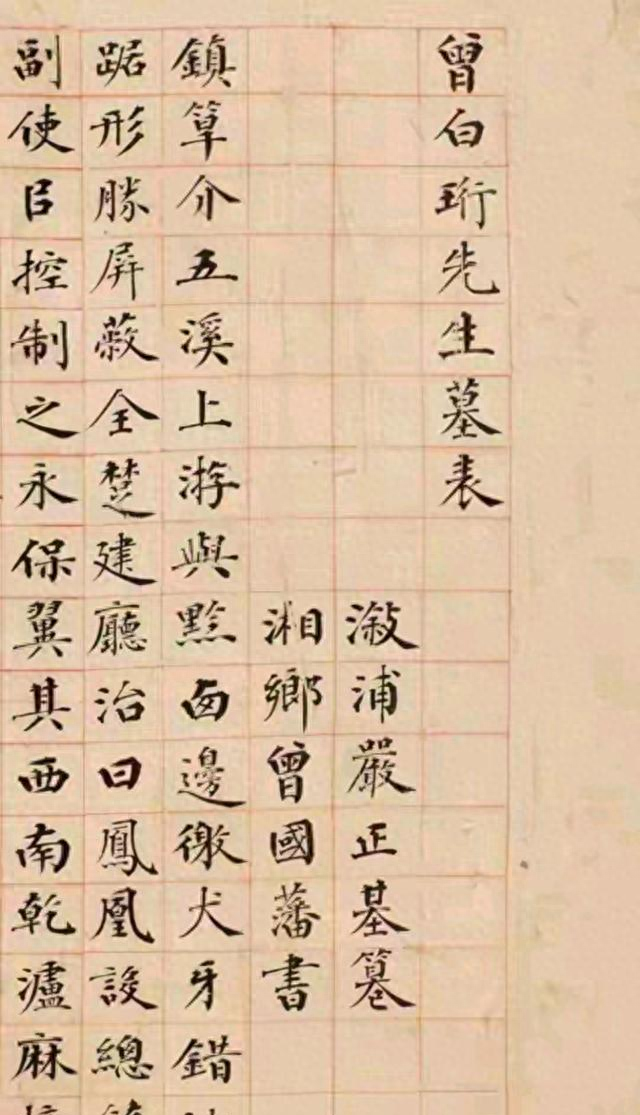 曾白珩先生墓表
漵浦嚴正基篹
湘鄉曾國藩書
鎮筸介五溪上游與黔囪邊徼犬牙錯
踞形勝屏蔽全楚建廳治曰鳳凰設總
副使臣控制之永保翼其西南乾瀘麻